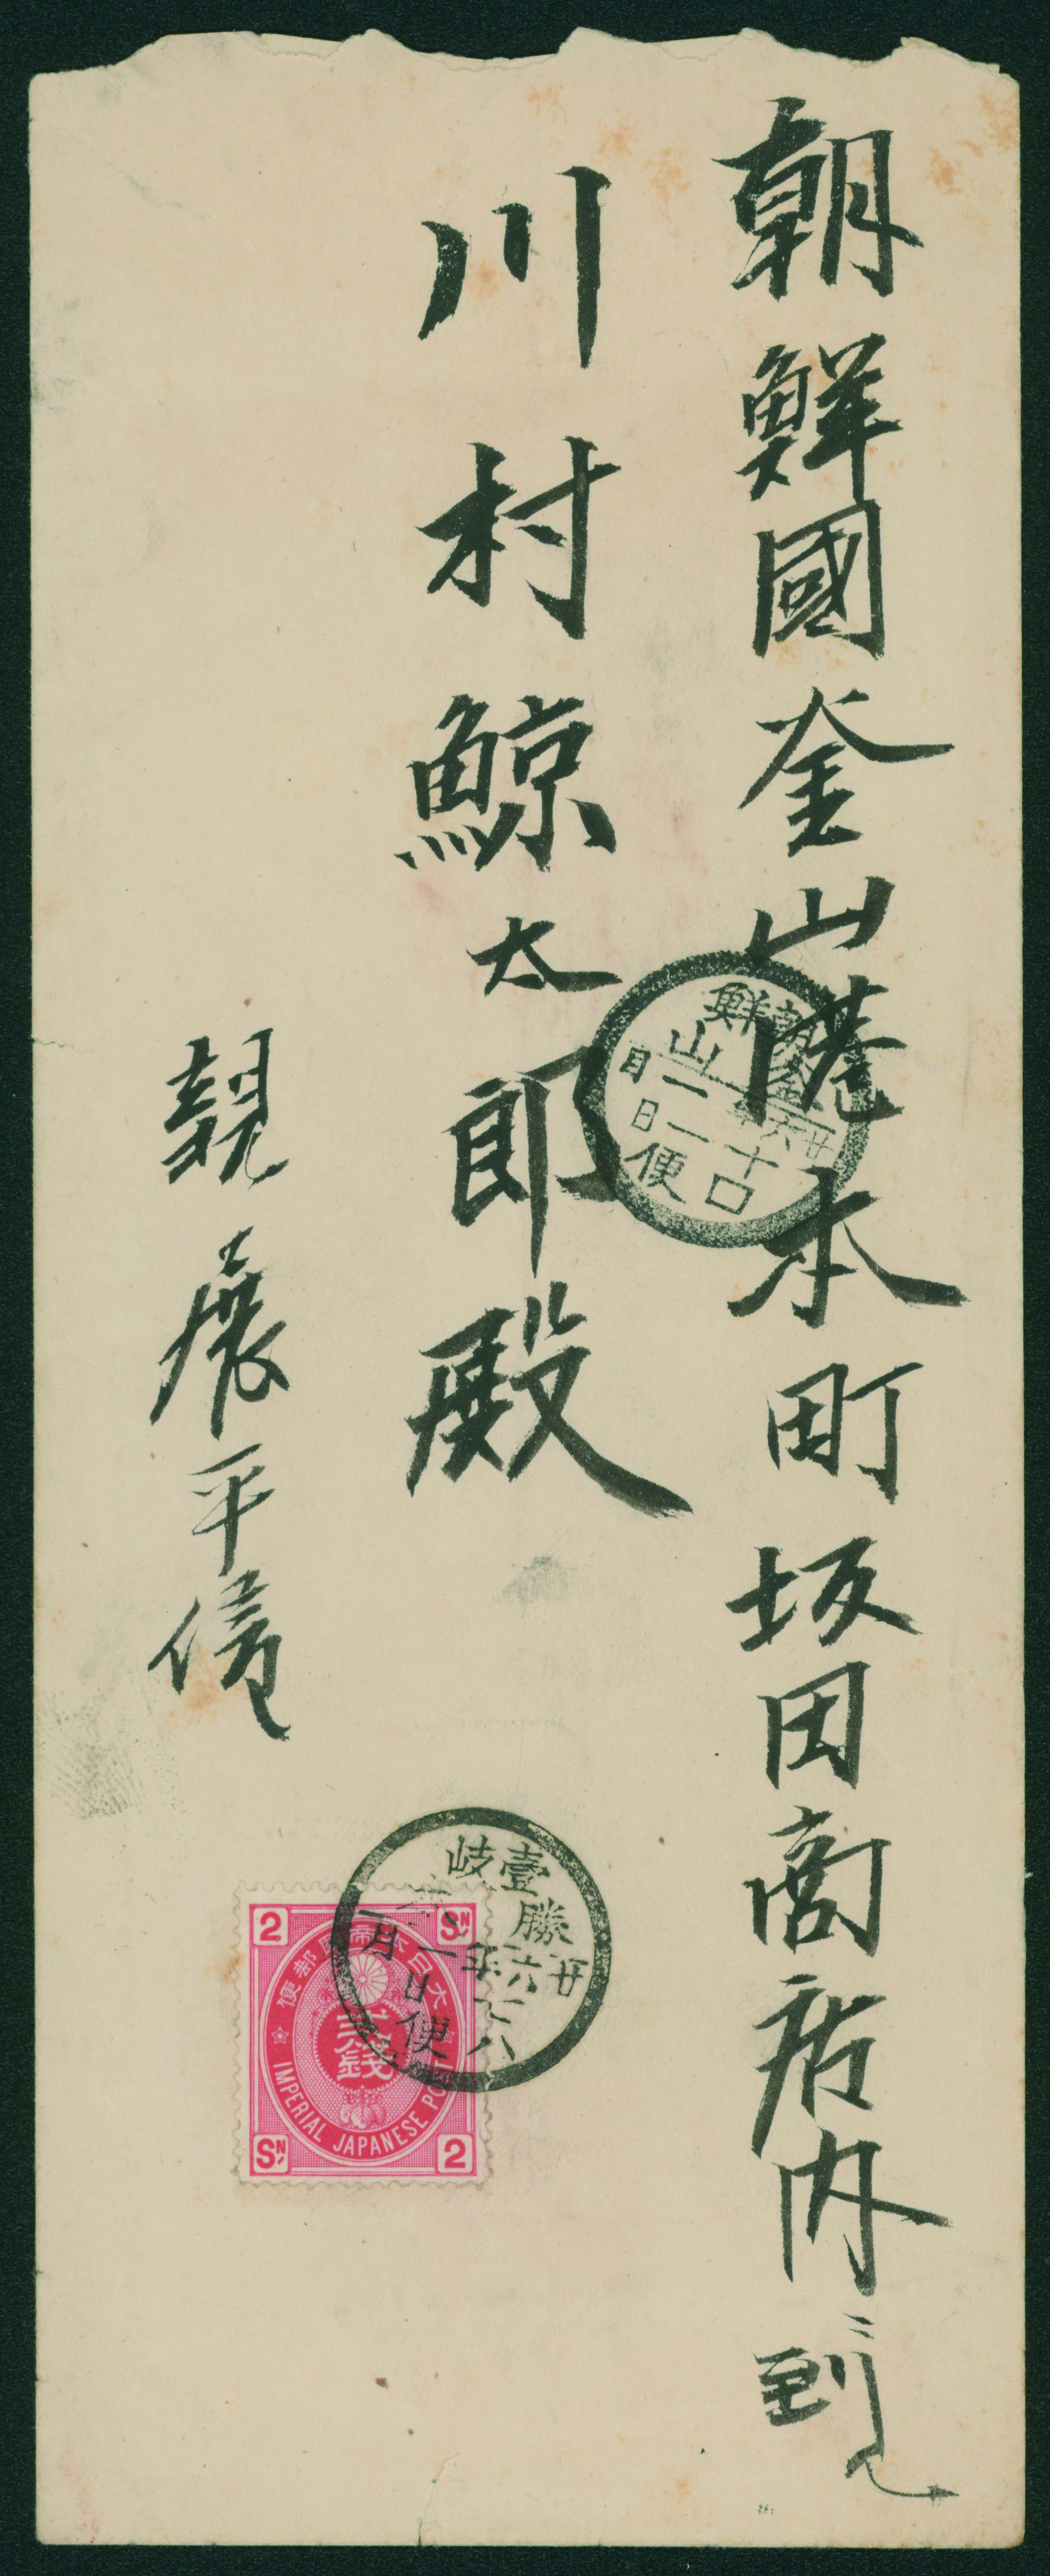 朝鮮國釜山港本町坂田商店内
川村鯨太郎殿
親展平信
朝鮮
釜山
廿六年
一月
十一日
口便
壹岐
勝本
廿六年
一月
八日
便
大日本帝國郵便
貳錢
IMPERIAL JAPANESE POST
2
SN
SN
2